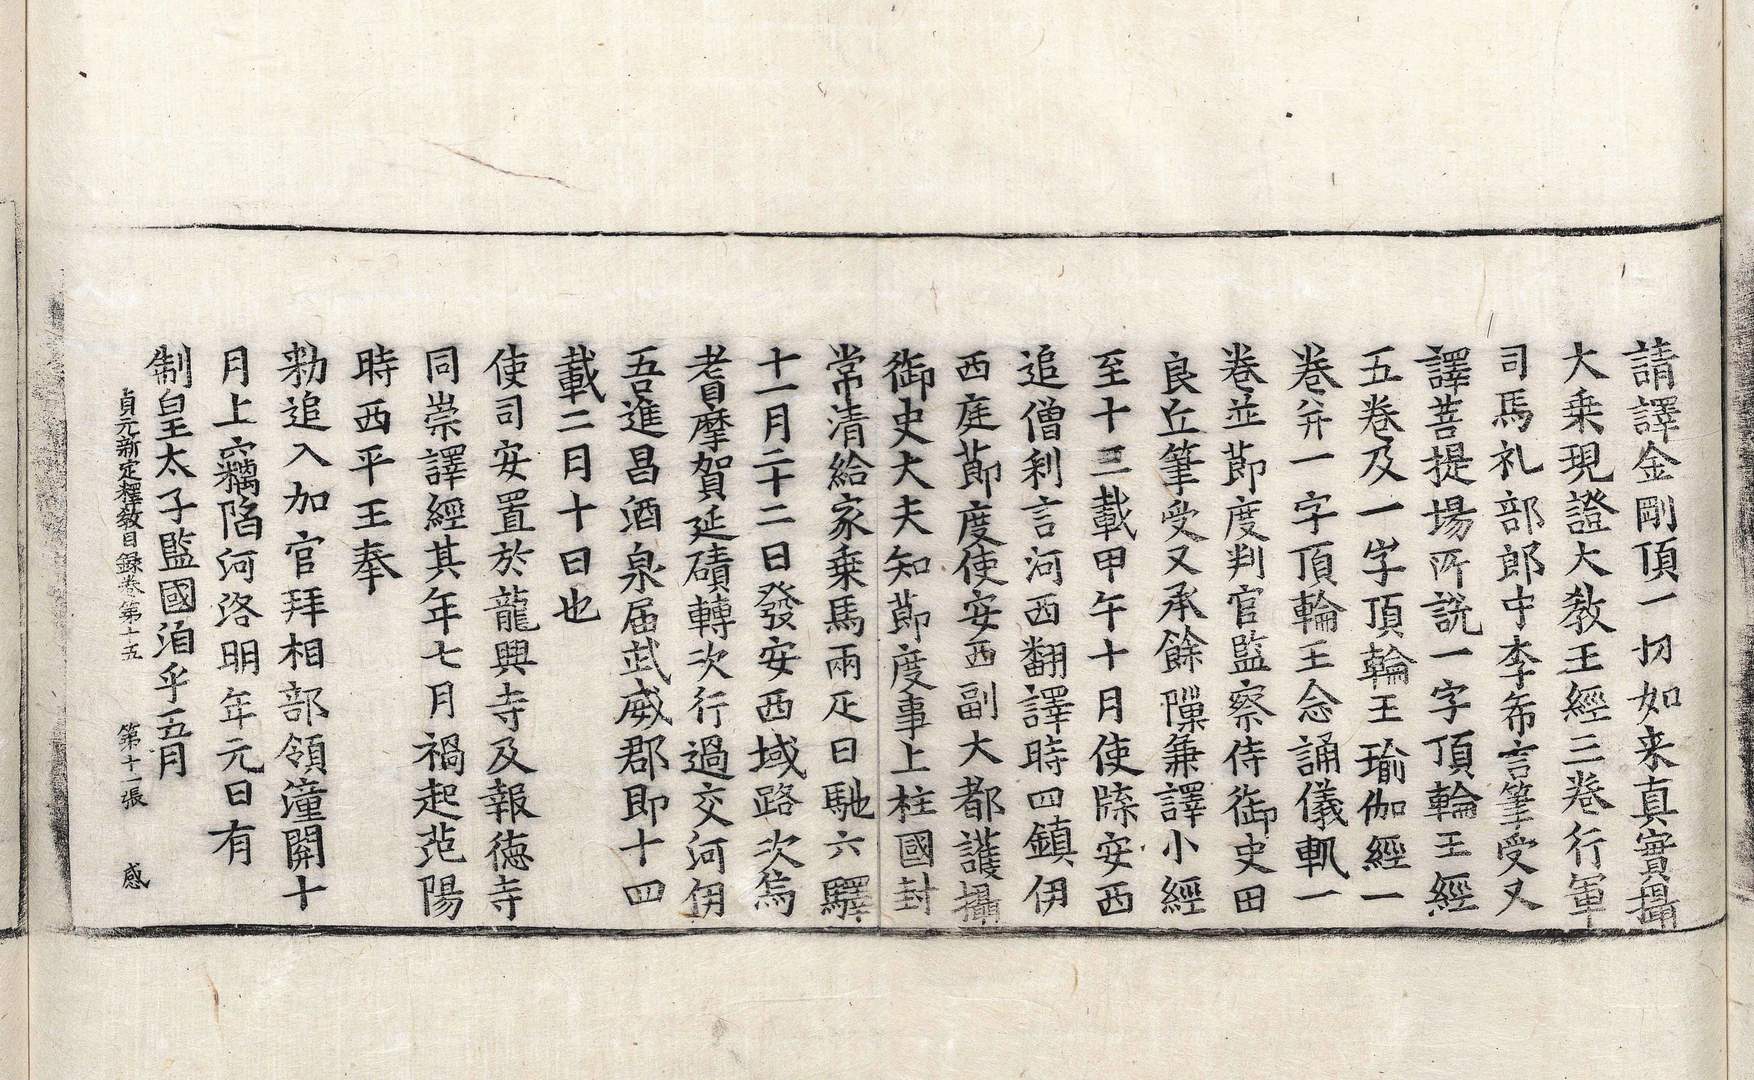 請譯金剛頂一切如来真實攝
大乗現證大教王經三卷行軍
司馬礼部郎中李希言筆受又
譯菩提場所説一字頂輪王經
五卷及一字頂輪王瑜伽經一
卷并一字頂輪王念誦儀軌一
卷並節度判官監察侍御史田
良丘筆受又承餘隟兼譯小經
至十三載甲午十月使牒安西
追僧利言河西翻譯時四鎮伊
西庭節度使安西副大都護攝
御史大夫知節度事上柱國封
常清給家乗馬兩疋日馳六驛
十一月二十二日發安西域路次焉
耆摩賀延磧轉次行過交河伊
吾進昌酒泉届武威郡即十四
載二月十日也
使司安置於龍興寺及報徳寺
同崇譯經其年七月禍起范陽
時西平王奉
勑追入加官拜相部領潼関十
月上竊陷河洛明年元日有
制皇太子監國洎乎五月
貞元新定釋教目録卷第十五 第十一張 感